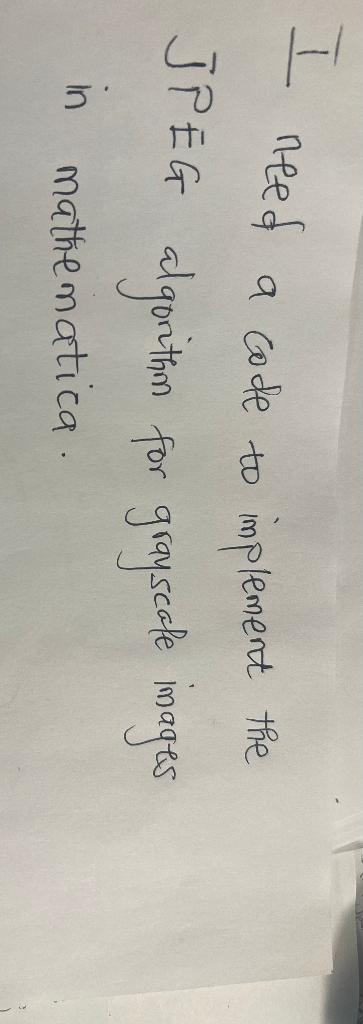 I need a code to implement the
JPEG algorithm for grayscale images
in mathematica.